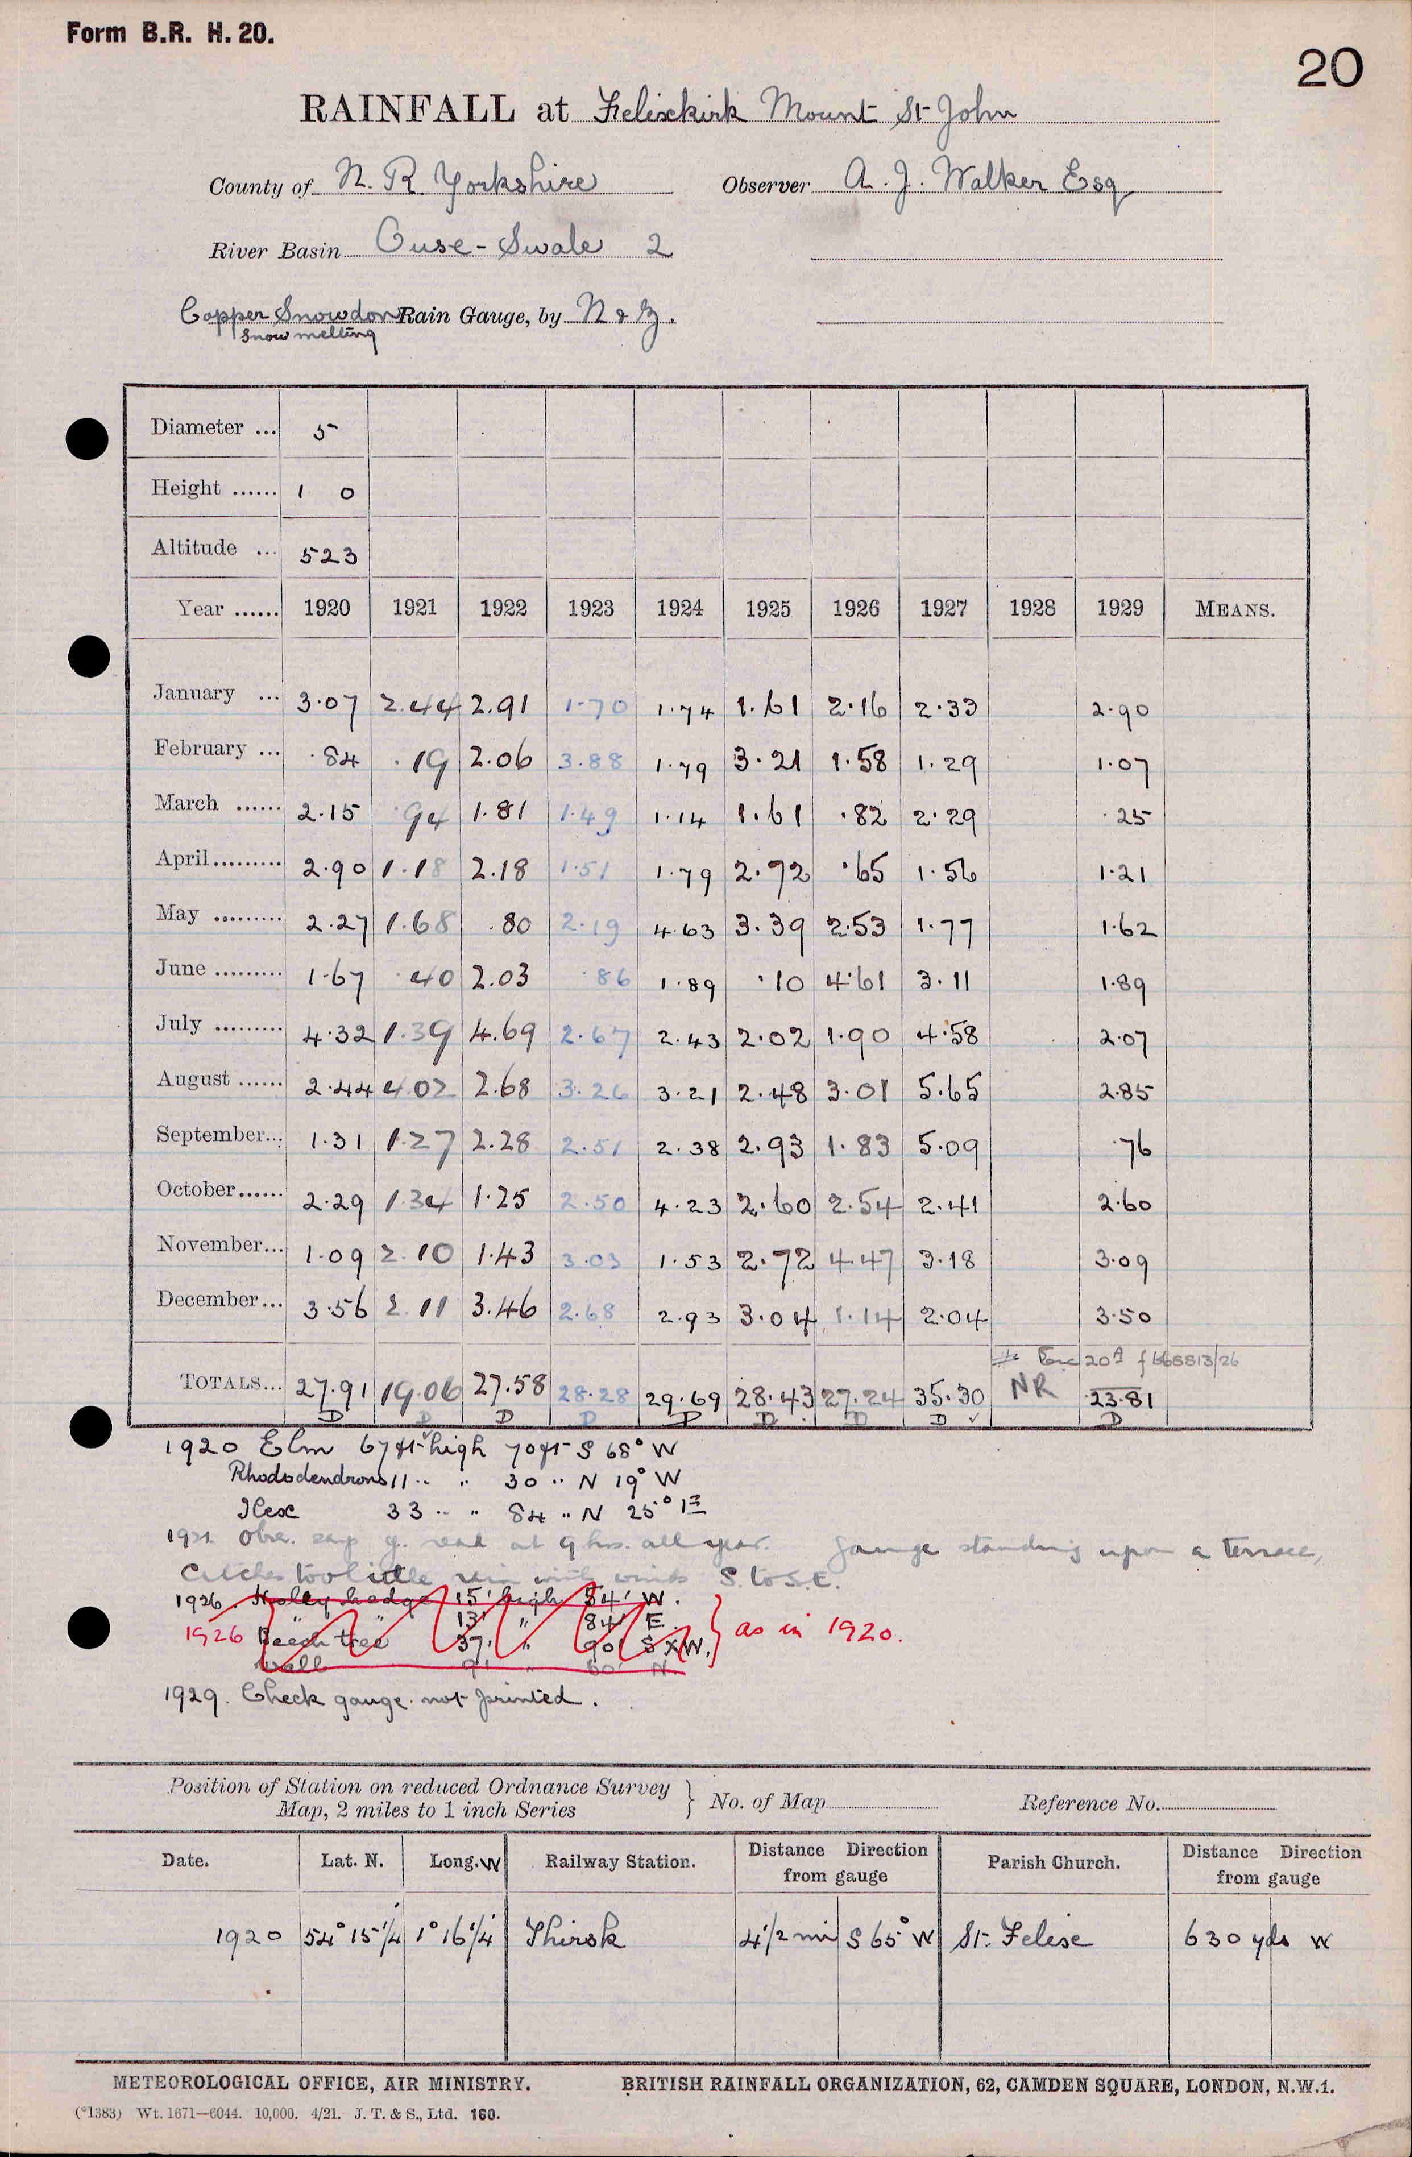 Form B.R. H. 20.
20
RAINFALL at Felixkirk Mount St John
County of N. R. Yorkshire Observer A. J. Walker Esq
River Basin Ouse - Swale 2
Copper Snowdon Rain Gauge, by N & Z.
Snow melting
Diameter ... 5
Height ...... 1 0
Altitude ... 523
Year ...... 1920 1921 1922 1923 1924 1925 1926 1927 1928 1929 MEANS.
January ... 3.07 2.44 2.91 1.70 1.74 1.61 2.16 2.33 2.90
February ... .84 .19 2.06 3.88 1.79 3.21 1.58 1.29 1.07
March ...... 2.15 .94 1.81 1.49 1.14 1.61 .82 2.29 .25
April ......... 2.90 1.18 2.18 1.51 1.79 2.72 .65 1.56 1.21
May ......... 2.27 1.68 .80 2.19 4.63 3.39 2.53 1.77 1.62
June ......... 1.67 .40 2.03 .86 1.89 .10 4.61 3.11 1.89
July ......... 4.32 1.39 4.69 2.67 2.43 2.02 1.90 4.58 2.07
August ...... 2.44 4.02 2.68 3.26 3.21 2.48 3.01 5.65 2.85
September... 1.31 1.27 2.28 2.51 2.38 2.93 1.83 5.09 .76
October...... 2.29 1.34 1.25 2.50 4.23 2.60 2.54 2.41 2.60
November... 1.09 2.10 1.43 3.03 1.53 2.72 4.47 3.18 3.09
December... 3.56 2.11 3.46 2.68 2.93 3.04 1.14 2.04 3.50
TOTALS... 27.91 19.06 27.58 28.28 29.69 28.43 27.24 35.30 NR 23.81
D D D D D D D D D
1920 Elm 67 ft high 70 ft S 68° W
Rhododendrons 11 .. " 30 .. N 19° W
Ilex 33 .. " 84 .. N 25° E
1921. Obs. g. read at 9 hrs. all year. Gauge standing upon a terrace,
Catches too little rain with winds S. to S.E.
1926. Holly hedge 15' high 54' W.
" " 13' " 84' E
1926 Beech tree 37' " 90' S x W. } as in 1920.
Wall 9' " 60' N.
1929. Check gauge. not printed.
Position of Station on reduced Ordnance Survey
Map, 2 miles to 1 inch Series } No. of Map Reference No.
Date. Lat. N. Long. W Railway Station. Distance Direction from gauge Parish Church. Distance Direction from gauge
1920 54° 15 1/4' 1° 16 1/4' Thirsk 4 1/2 mi S 65° W St. Felix 630 yds W
METEOROLOGICAL OFFICE, AIR MINISTRY. BRITISH RAINFALL ORGANIZATION, 62, CAMDEN SQUARE, LONDON, N.W.1.
(*1383) Wt. 1671—6044. 10,000. 4/21. J. T. & S., Ltd. 160.